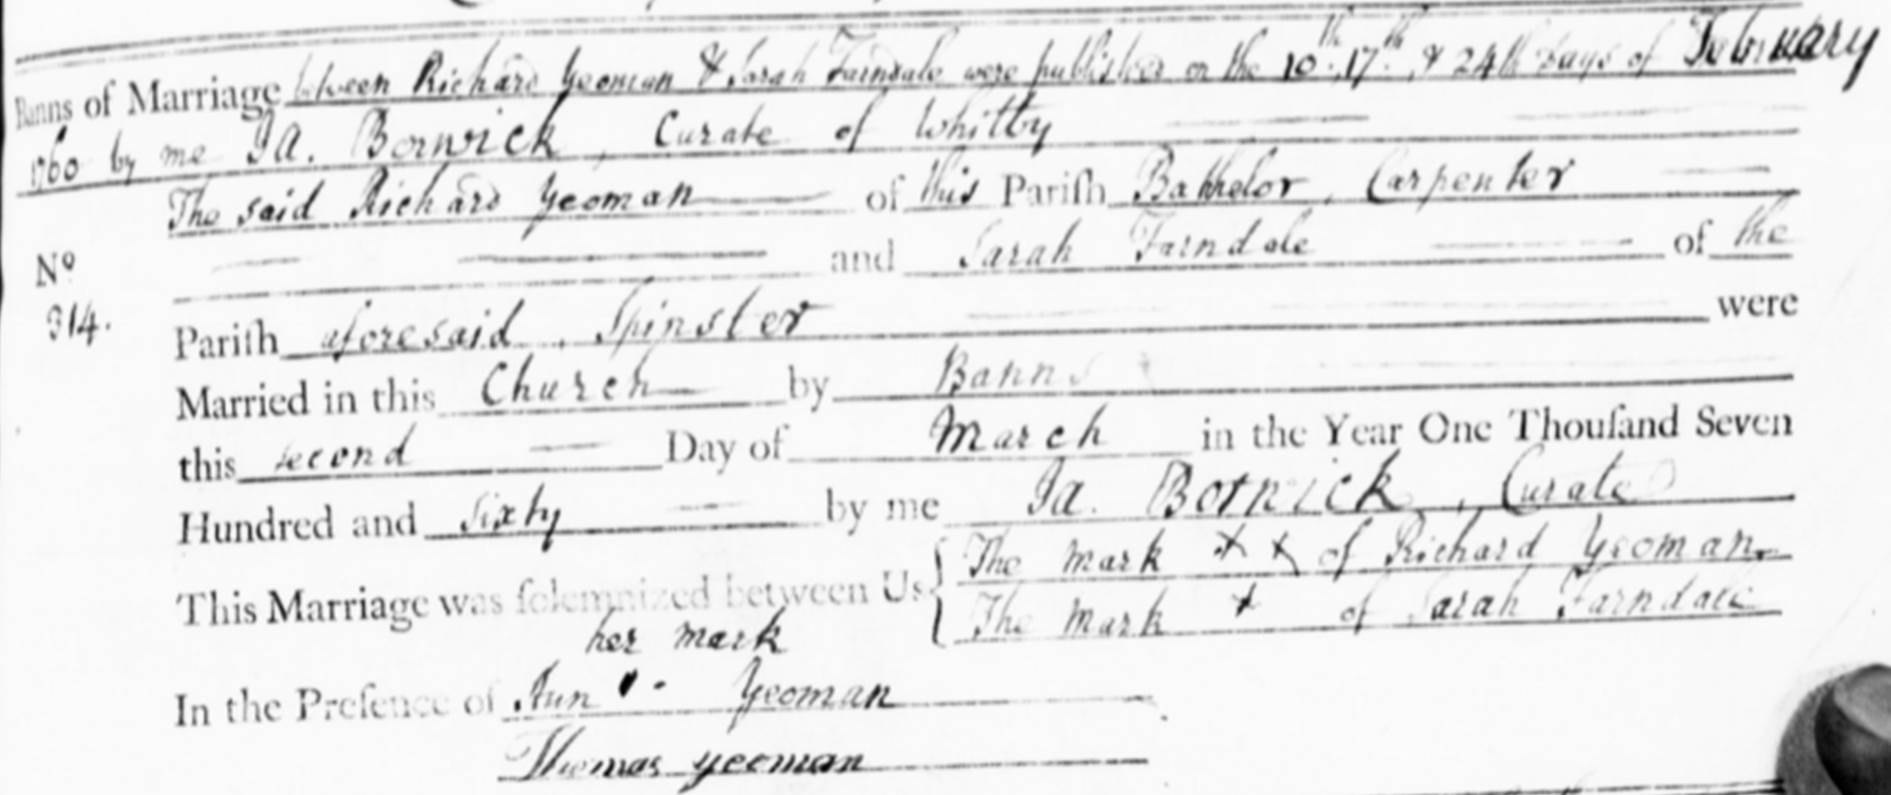 Banns of Marriage between Richard Yeoman & Sarah Farndale were published on the 10th, 17th, & 24th days of February
1760 by me Ja. Borwick, Curate of Whitby
The said Richard Yeoman of this Pariſh Batchelor, Carpenter
and Sarah Farndale of the
No
314.
Pariſh aforesaid, Spinster were
Married in this Church by Banns
this second Day of March in the Year One Thouſand Seven
Hundred and sixty by me Ja. Borwick, Curate
This Marriage was ſolemnized between Us { The mark ++ of Richard Yeoman
The mark + of Sarah Farndale
her mark
In the Preſence of Ann Yeoman
Thomas yeoman